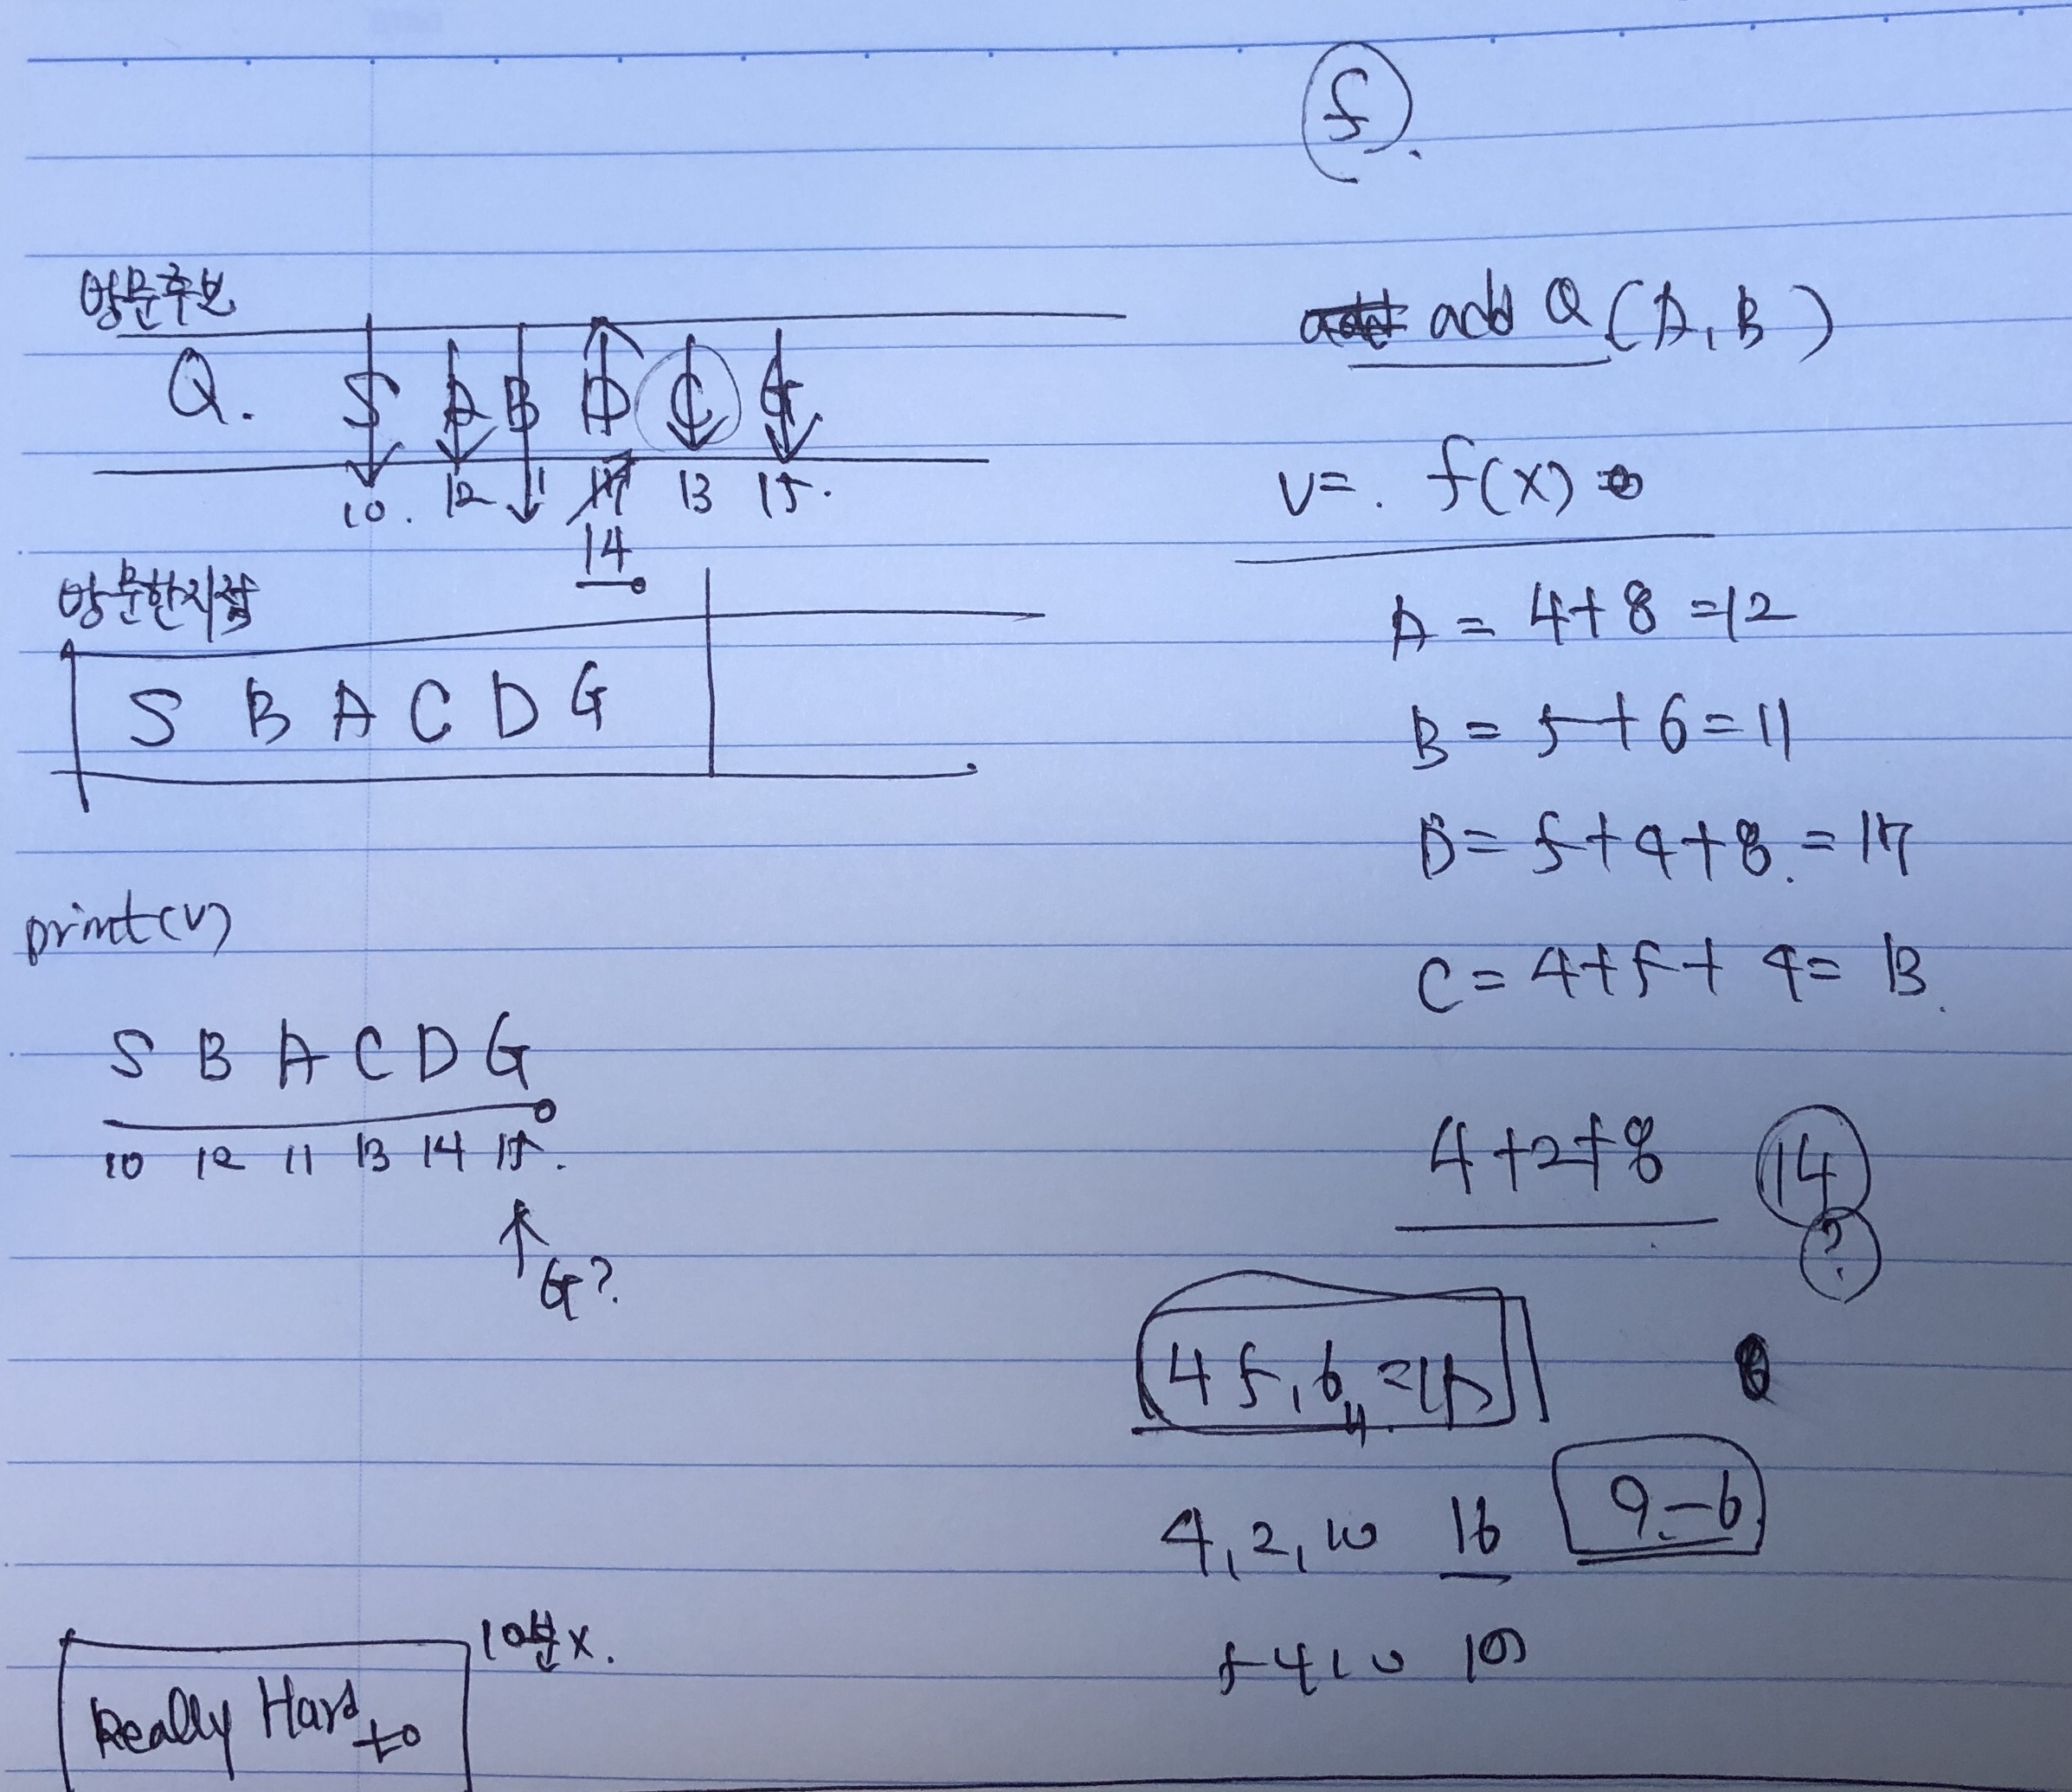 f.
방문후보
Q. S A B D C G
10. 12 11 17 13 15.
14
방문한지점
S B A C D G
print(v)
S B A C D G
10 12 11 13 14 15.
G?
10분x.
Really Hard
to
add Q (A, B)
v=. f(x)
A = 4+8=12
B = 5+6=11
D = 5+4+8.=17
C = 4+5+4=13.
4+2+8 14
?
4 5, 6, =15
4, 2, 10 16 9-6
5 4 10 19